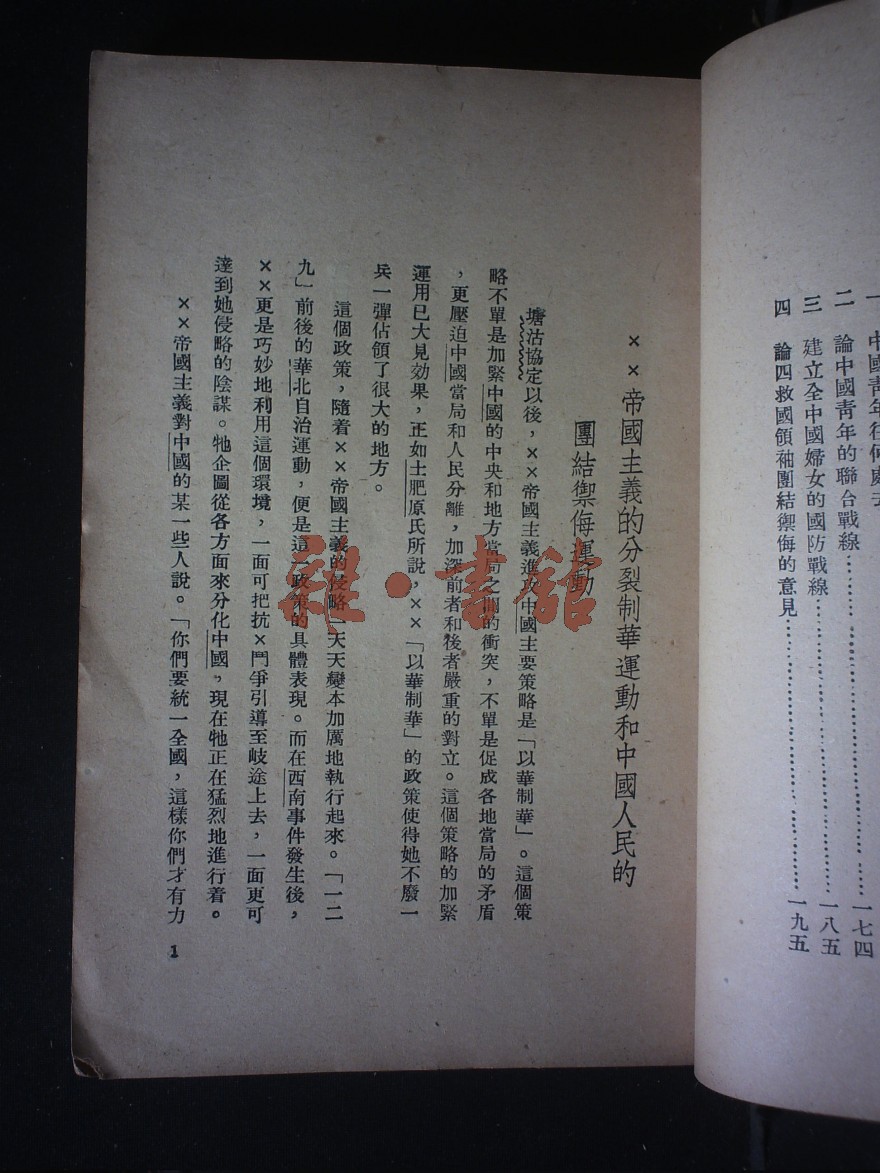 一 中國青年往何處去
二 論中國青年的聯合戰線……………………………………一七四
三 建立全中國婦女的國防戰線……………………………一八五
四 論四救國領袖團結禦侮的意見……………………一九五
××帝國主義的分裂制華運動和中國人民的
團結禦侮運動
塘沽協定以後，××帝國主義進攻中國主要策略是「以華制華」。這個策
略不單是加緊中國的中央和地方當局之間的衝突，不單是促成各地當局的矛盾
，更壓迫中國當局和人民分離，加深前者和後者嚴重的對立。這個策略的加緊
運用已大見效果，正如土肥原氏所說，××「以華制華」的政策使得她不廢一
兵一彈佔領了很大的地方。
這個政策，隨着××帝國主義的侵略一天天變本加厲地執行起來。「一二
九」前後的華北自治運動，便是這一政策的具體表現。而在西南事件發生後，
××更是巧妙地利用這個環境，一面可把抗×鬥爭引導至岐途上去，一面更可
達到她侵略的陰謀。牠企圖從各方面來分化中國，現在牠正在猛烈地進行着。
××帝國主義對中國的某一些人說。「你們要統一全國，這樣你們才有力
1
雜·書館